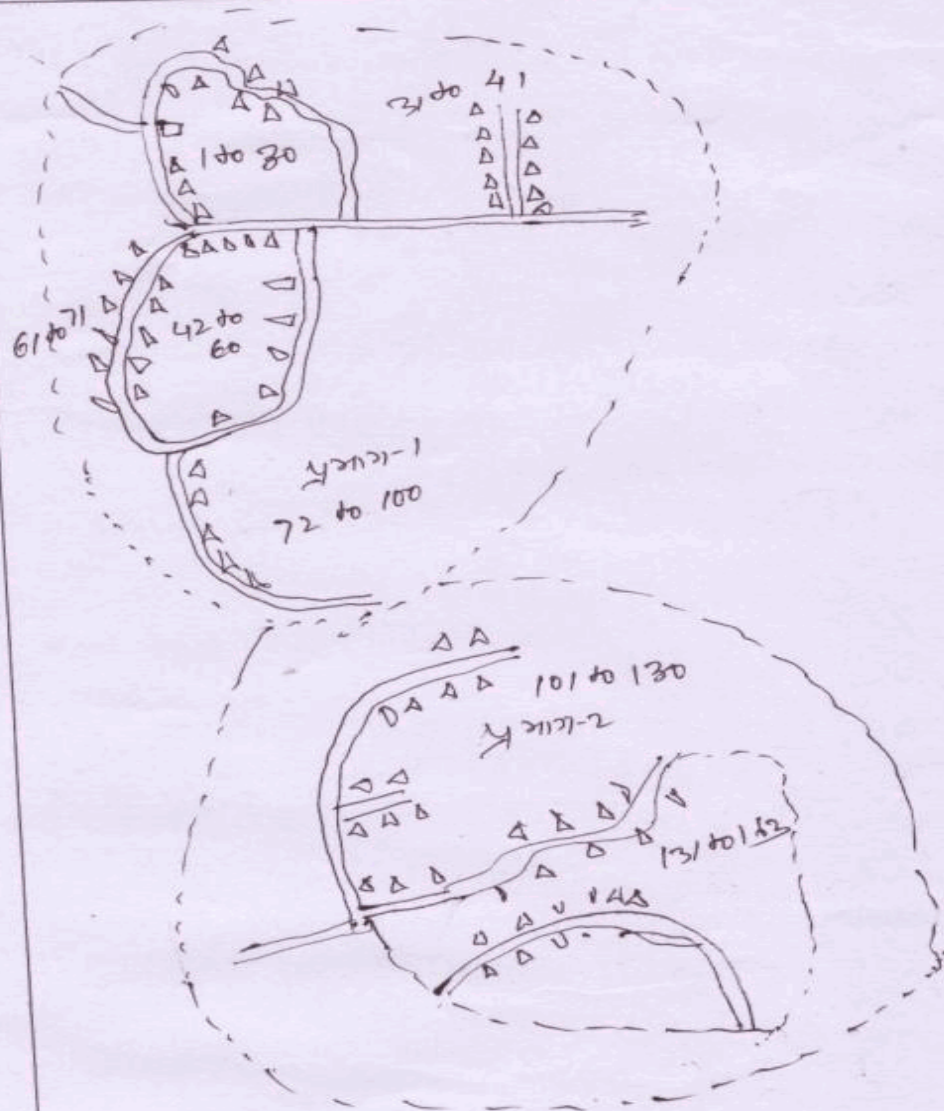 1 to 30
31 to 41
61 to 71
42 to
60
-1
72 to 100
101 to 130
-2
131 to